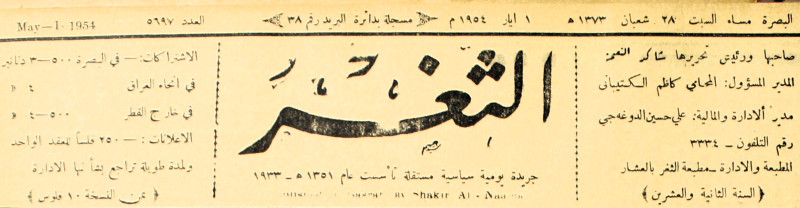 البصرة مساء السبت ٢٨ شعبان ١٣٧٣ هـ ١ ايار ١٩٥٤ م ﴿ مسجلة بدائرة البريد رقم ٣٨ ﴾ العدد ٥٦٩٧ May-1-1954
صاحبها ورئيس تحريرها شاكر النعمة
المدير المسؤول: المحامي كاظم الكتيباني
مدير الادارة والمالية: علي حسين الدوغه جي
رقم التلفون – ٣٣٣٤
المطبعة والادارة – مطبعة الثغر بالعشار
﴿ السنة الثانية والعشرين ﴾
الثغر
جريدة يومية سياسية مستقلة تأسست عام ١٣٥١ هـ – ١٩٣٣
Shakir Al-
الاشتراكات: – في البصرة ٥٠٠–٣ دنانير
في انحاء العراق ٤ »
في خارج القطر ٥٠٠–٤ »
الاعلانات: – ٢٥٠ فلساً للعقد الواحد
ولمدة طويلة تراجع بشأنها الادارة
﴿ ثمن النسخة ١٠ فلوس ﴾